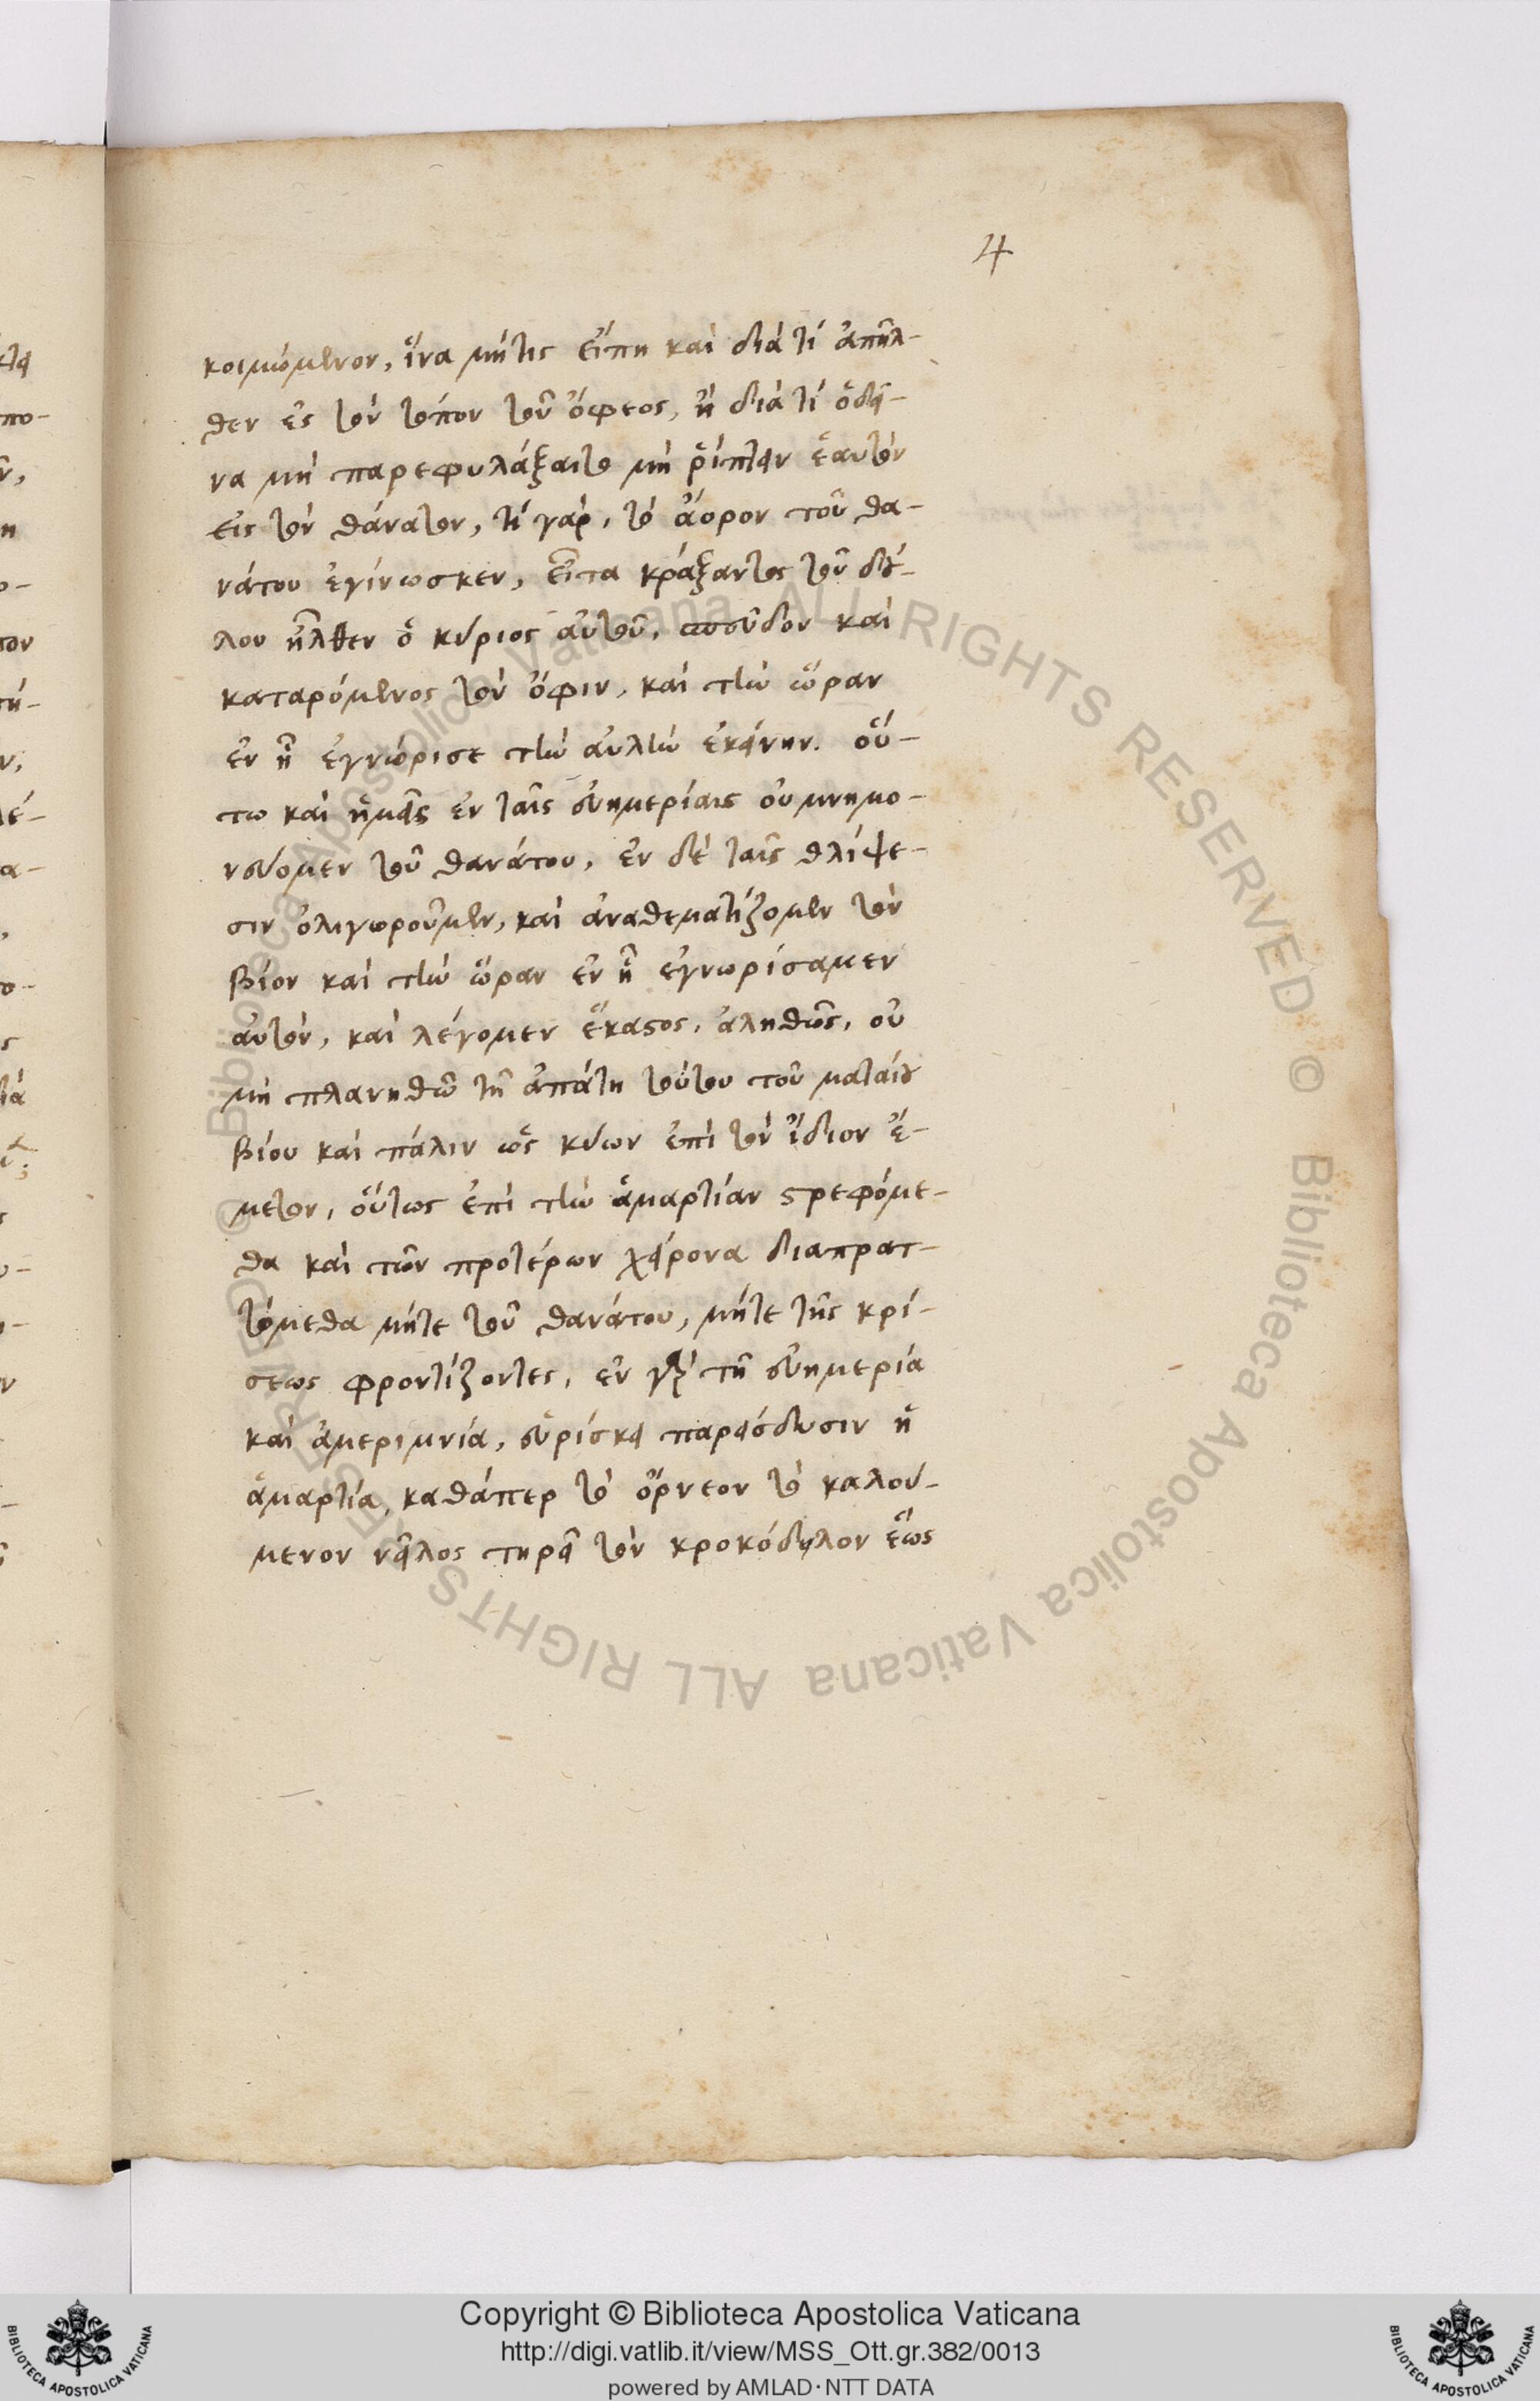 4
κοιμώμενον, ἵνα μήτις εἴπη καὶ διὰ τί ἀπῆλ-
θεν εἰς τὸν τόπον τοῦ ὄφεος, ἢ διὰ τί ὁ δεῖ-
να μὴ παρεφυλάξαιτο μὴ ῥίπτειν ἑαυτὸν
εἰς τὸν θάνατον, τί γὰρ, τὸ ἄορον τοῦ θα-
νάτου ἐγίνωσκεν, εἶτα κράξαντος τοῦ δού-
λου ἦλθεν ὁ κύριος αὐτοῦ, καὶ
καταρόμενος τὸν ὄφιν, καὶ τὴν ὥραν
ἐν ᾗ ἐγνώρισε τὴν αὐλὴν ἐκείνην. οὕ-
τω καὶ ἡμεῖς ἐν ταῖς εὐημερίαις οὐ μνημο-
νεύομεν τοῦ θανάτου, ἐν δὲ ταῖς θλίψε-
σιν ὀλιγωροῦμεν, καὶ ἀναθεματίζομεν τὸν
βίον καὶ τὴν ὥραν ἐν ᾗ ἐγνωρίσαμεν
αὐτὸν, καὶ λέγομεν ἕκαστος, ἀληθῶς, οὐ
μὴ πλανηθῶ τῇ ἀπάτη τούτου τοῦ ματαίου
βίου καὶ πάλιν ὡς κύων ἐπὶ τὸν ἴδιον ἔ-
μετον, οὕτως ἐπὶ τὴν ἁμαρτίαν στρεφόμε-
θα καὶ τῶν προτέρων χείρονα διαπρατ-
τόμεθα μήτε τοῦ θανάτου, μήτε τῆς κρί-
σεως φροντίζοντες, ἐν γὰρ τῇ εὐημερία
καὶ ἀμεριμνία, εὑρίσκει παρείσδυσιν ἡ
ἁμαρτία, καθάπερ τὸ ὄρνεον τὸ καλού-
μενον νεῖλος τηρεῖ τὸν κροκόδειλον ἕως
Copyright © Biblioteca Apostolica Vaticana
http://digi.vatlib.it/view/MSS_Ott.gr.382/0013
powered by AMLAD·NTT DATA
BIBLIOTECA APOSTOLICA VATICANA
BIBLIOTECA APOSTOLICA VATICANA
© Biblioteca Apostolica Vaticana ALL RIGHTS RESERVED
© Biblioteca Apostolica Vaticana ALL RIGHTS RESERVED